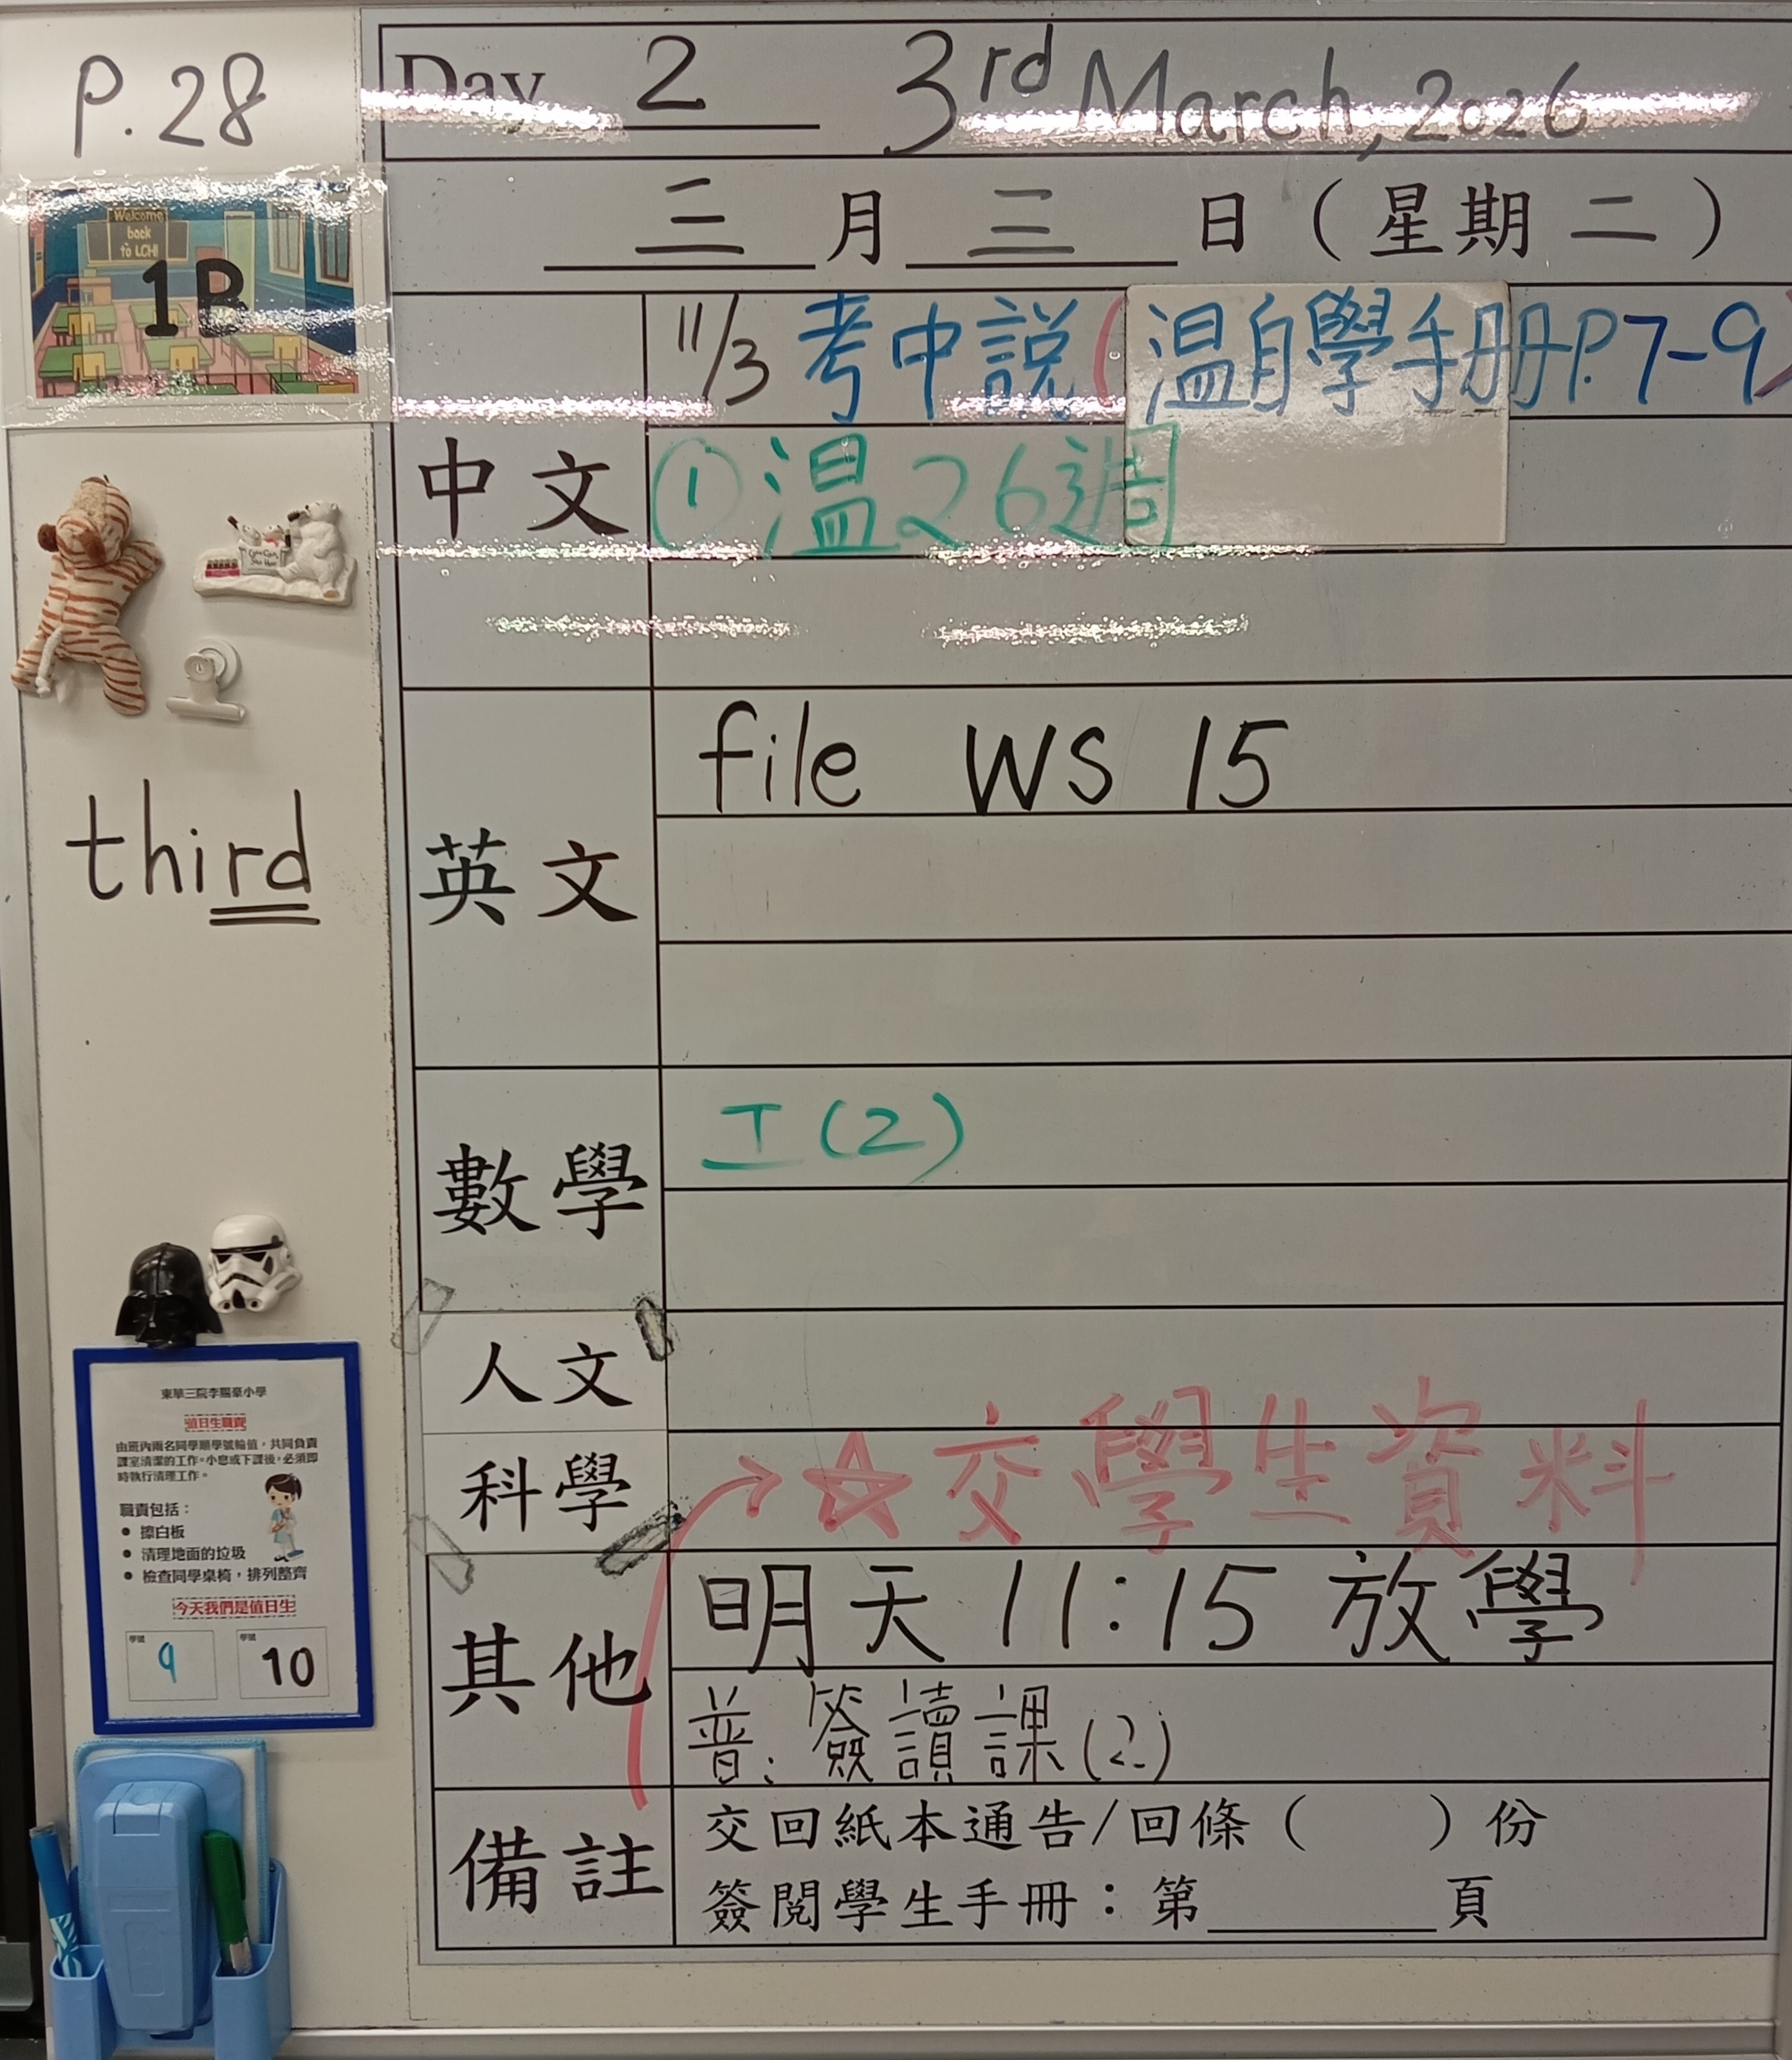 P.28
Day 2 3rd March, 2026
三月三日（星期二）
Welcome
back
to LCH!
1B
11/3 考中說(温自學手册P.7-9)
中文 ①温26週
third
英文 file WS 15
數學 工(2)
人文
科學 → ☆交學生資料
其他 明天11:15放學
普: 簽讀課(2)
備註 交回紙本通告/回條（ ）份
簽閱學生手冊：第______頁
東華三院李賜豪小學
值日生職責
由班內兩名同學順學號輪值，共同負責
課室清潔的工作。小息或下課後，必須即
時執行清理工作。
職責包括：
● 擦白板
● 清理地面的垃圾
● 檢查同學桌椅，排列整齊
今天我們是值日生
學號 9 學號 10